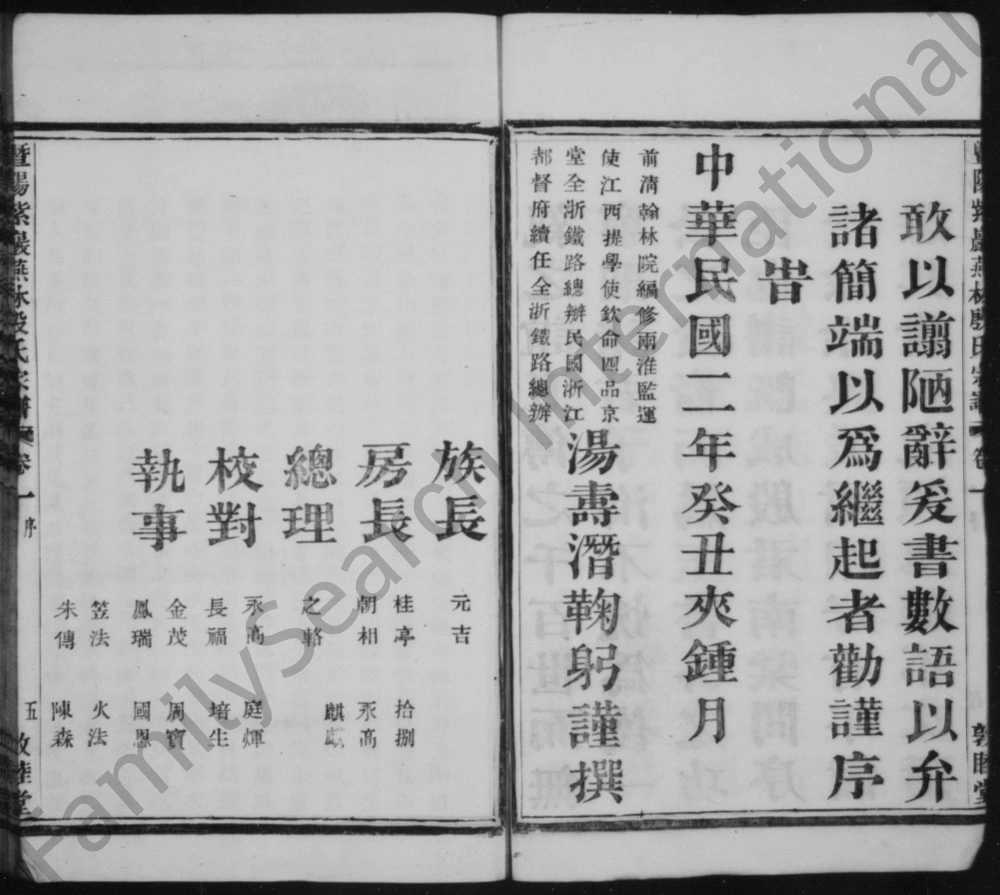 敢以謭陋辭爰書數語以弁
諸簡端以爲繼起者勸謹序
旹
中華民國二年癸丑夾鍾月
前清翰林院編修兩淮監運
使江西提學使欽命四品京
堂全浙鐵路總辦民國浙江
都督府續任全浙鐵路總辦
湯壽潛鞠躬謹撰
敦睦堂
族長 元吉
房長 桂亭 拾捌
朝相 永高
總理 之輅 麒麟
永高 庭煇
校對 長福 培生
金茂 周寶
執事 鳳瑞 國恩
笠法 火法
朱傳 陳森
暨陽紫巖蕪林殷氏宗譜 卷一 序 五 敦睦堂
FamilySearch International